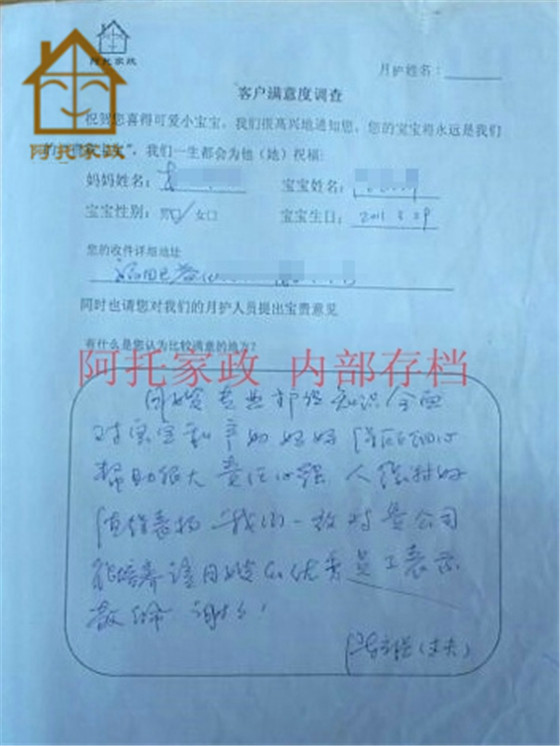 阿托家政
阿托家政
月护姓名：
客户满意度调查
祝贺您喜得可爱小宝宝，我们很高兴地通知您，您的宝宝将永远是我们
”，我们一生都会为他（她）祝福：
妈妈姓名： 宝宝姓名：
宝宝性别：男□ 女□ 宝宝生日：2011 3 29
您的收件详细地址
福田区
同时也请您对我们的月护人员提出宝贵意见
有什么是您认为比较满意的地方？
阿托家政 内部存档
月嫂专业护理知识全面
对宝宝和产妇妈妈 细心
帮助很大 责任心强 人
值得表扬 我们一致对贵公司
能培养该月嫂的优秀员工表示
谢谢！
（丈夫）